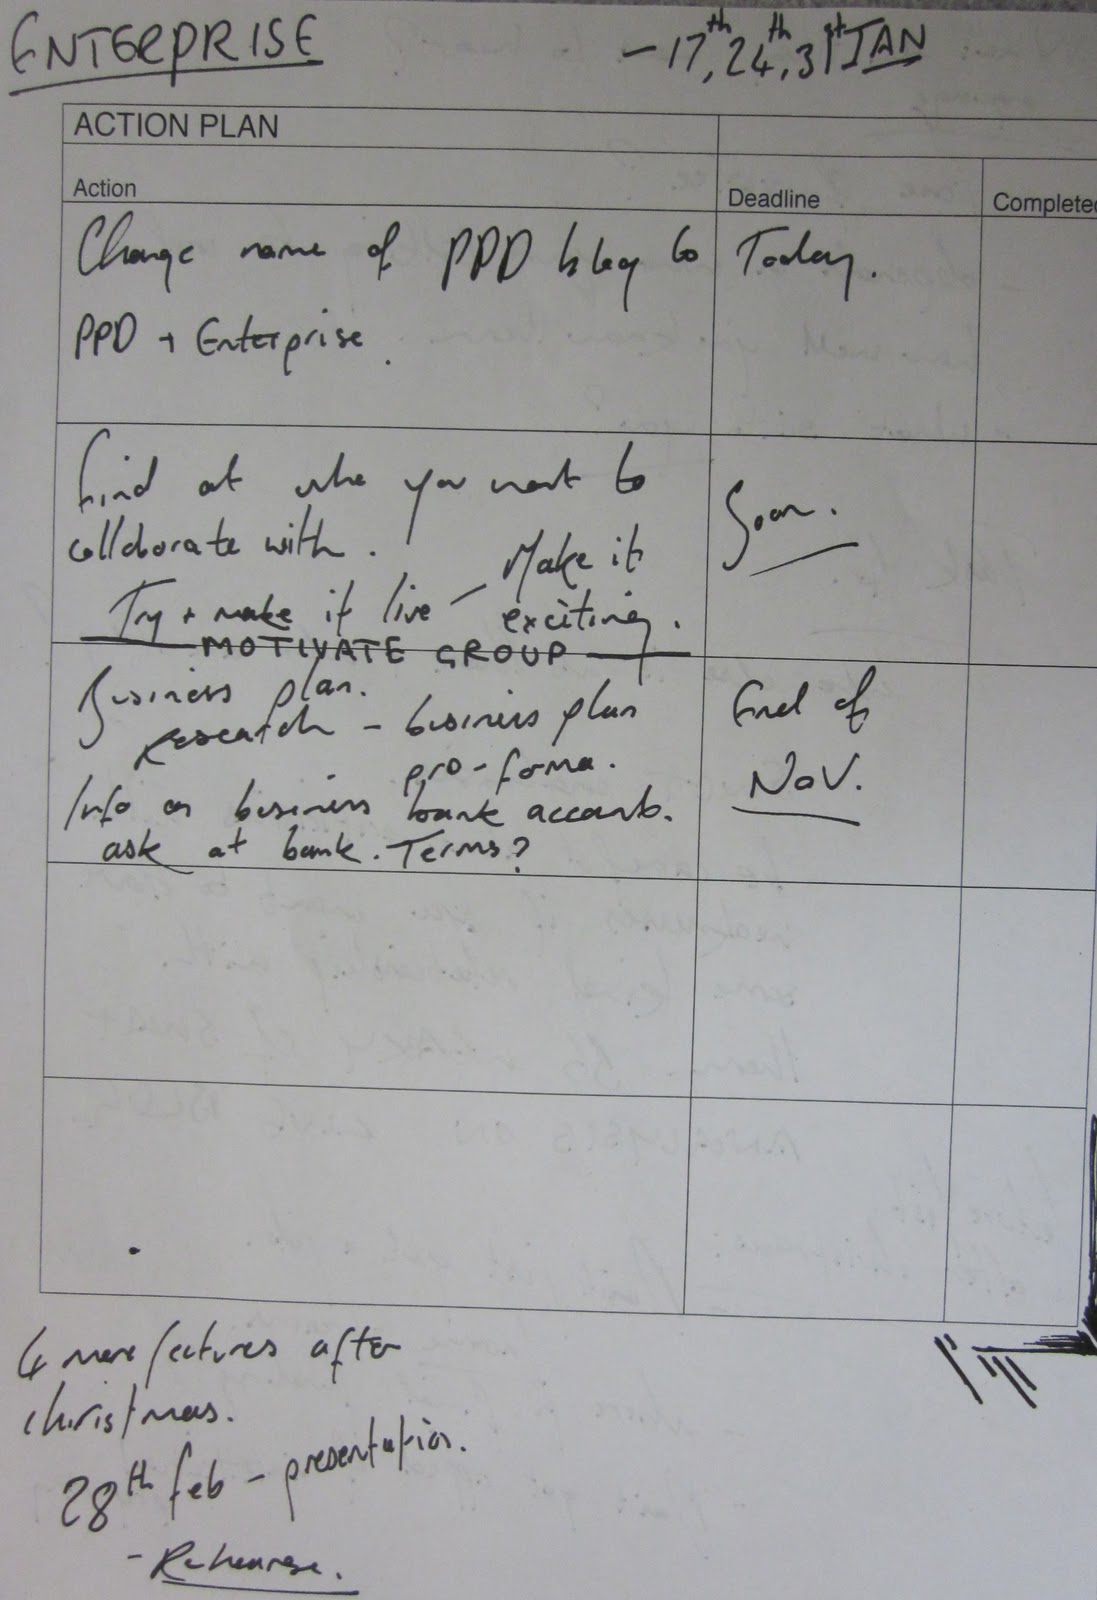 ENTERPRISE
- 17th, 24th, 31st JAN
ACTION PLAN
Action
Deadline
Completed
Change name of PPD blog to
PPD + Enterprise.
Today.
Find out who you want to
collaborate with.
Try + make it live - Make it
exciting.
Soon.
MOTIVATE GROUP
Business plan.
research - business plan
pro-forma.
Info on business bank accounts.
ask at bank. Terms?
End of
NOV.
4 more lectures after
christmas.
28th feb - presentation.
- Rehearse.